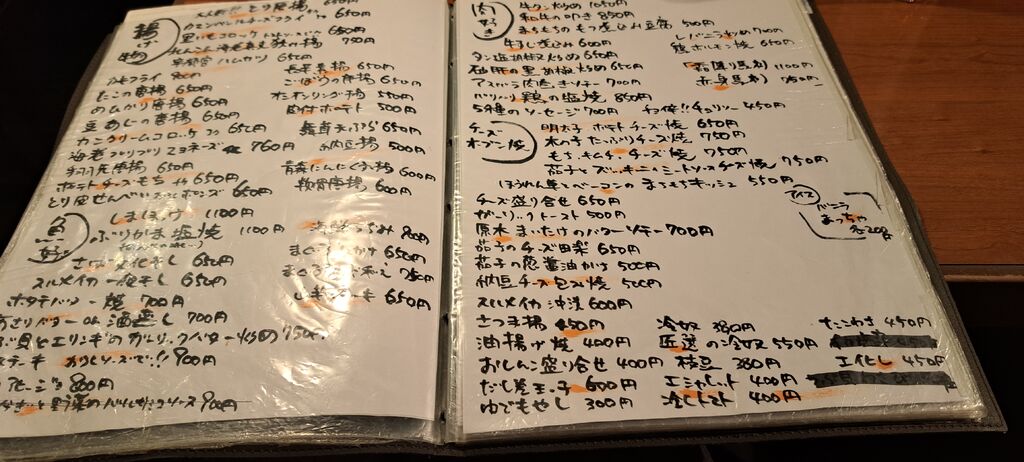 揚げ物
とり唐揚 650円
カマンベールチーズフライ 650円
里いもコロッケ 650円
750円
ハムカツ 650円
長芋素揚 650円
カキフライ 800円
ごぼうの唐揚 650円
たこの唐揚 650円
オニオンリング揚 550円
めひかり唐揚 650円
皮付ポテト 500円
豆あじの唐揚 650円
650円
カニクリームコロッケ 650円
納豆揚 500円
海老プリプリマヨネーズ 760円
青森にんにく揚 600円
唐揚 650円
軟骨唐揚 600円
ポテトチーズもち 650円
とり皮せんべい ポンズ 650円
魚好き
しまほっけ 1100円
ぶりかま塩焼 1100円
800円
650円
まぐろ 650円
スルメイカ一夜干し 650円
まぐろ 750円
ホタテバター焼 700円
650円
あさりバターor酒蒸し 700円
エリンギのガーリックバター炒め 750円
ステーキ 900円
アヒージョ 800円
900円
肉好き
牛タン炒め 1050円
和牛の叩き 850円
まちもちのもつ煮込み豆腐 500円
牛すじ煮込み 600円
レバニラ炒め 700円
タン塩胡椒炒め 650円
鶏ホルモン焼 650円
砂肝の黒胡椒炒め 650円
霜降り馬刺 1100円
アスパラ肉巻き 700円
赤身馬刺 750円
パリパリ鶏の塩焼 850円
5種のソーセージ 700円
チョリソー 450円
チーズオーブン焼
明太子ポテトチーズ焼 650円
木の子たっぷりチーズ焼 750円
もち、キムチ、チーズ焼 750円
茄子とズッキーニミートソースチーズ焼 750円
ほうれん草とベーコンのまちまちキッシュ 550円
チーズ盛り合せ 650円
アイス
ガーリックトースト 500円
バニラ
まっちゃ
各200円
原木まいたけのバターソテー 700円
茄子のチーズ田楽 650円
茄子の葱醤油かけ 500円
納豆チーズ包み焼 500円
スルメイカ沖漬 600円
さつま揚 450円
冷奴 380円
たこわさ 450円
油揚げ焼 400円
匠選の冷奴 550円
おしんこ盛り合せ 400円
枝豆 380円
エイヒレ 450円
だし巻玉子 600円
エシャレット 400円
ゆでもやし 300円
冷しトマト 400円